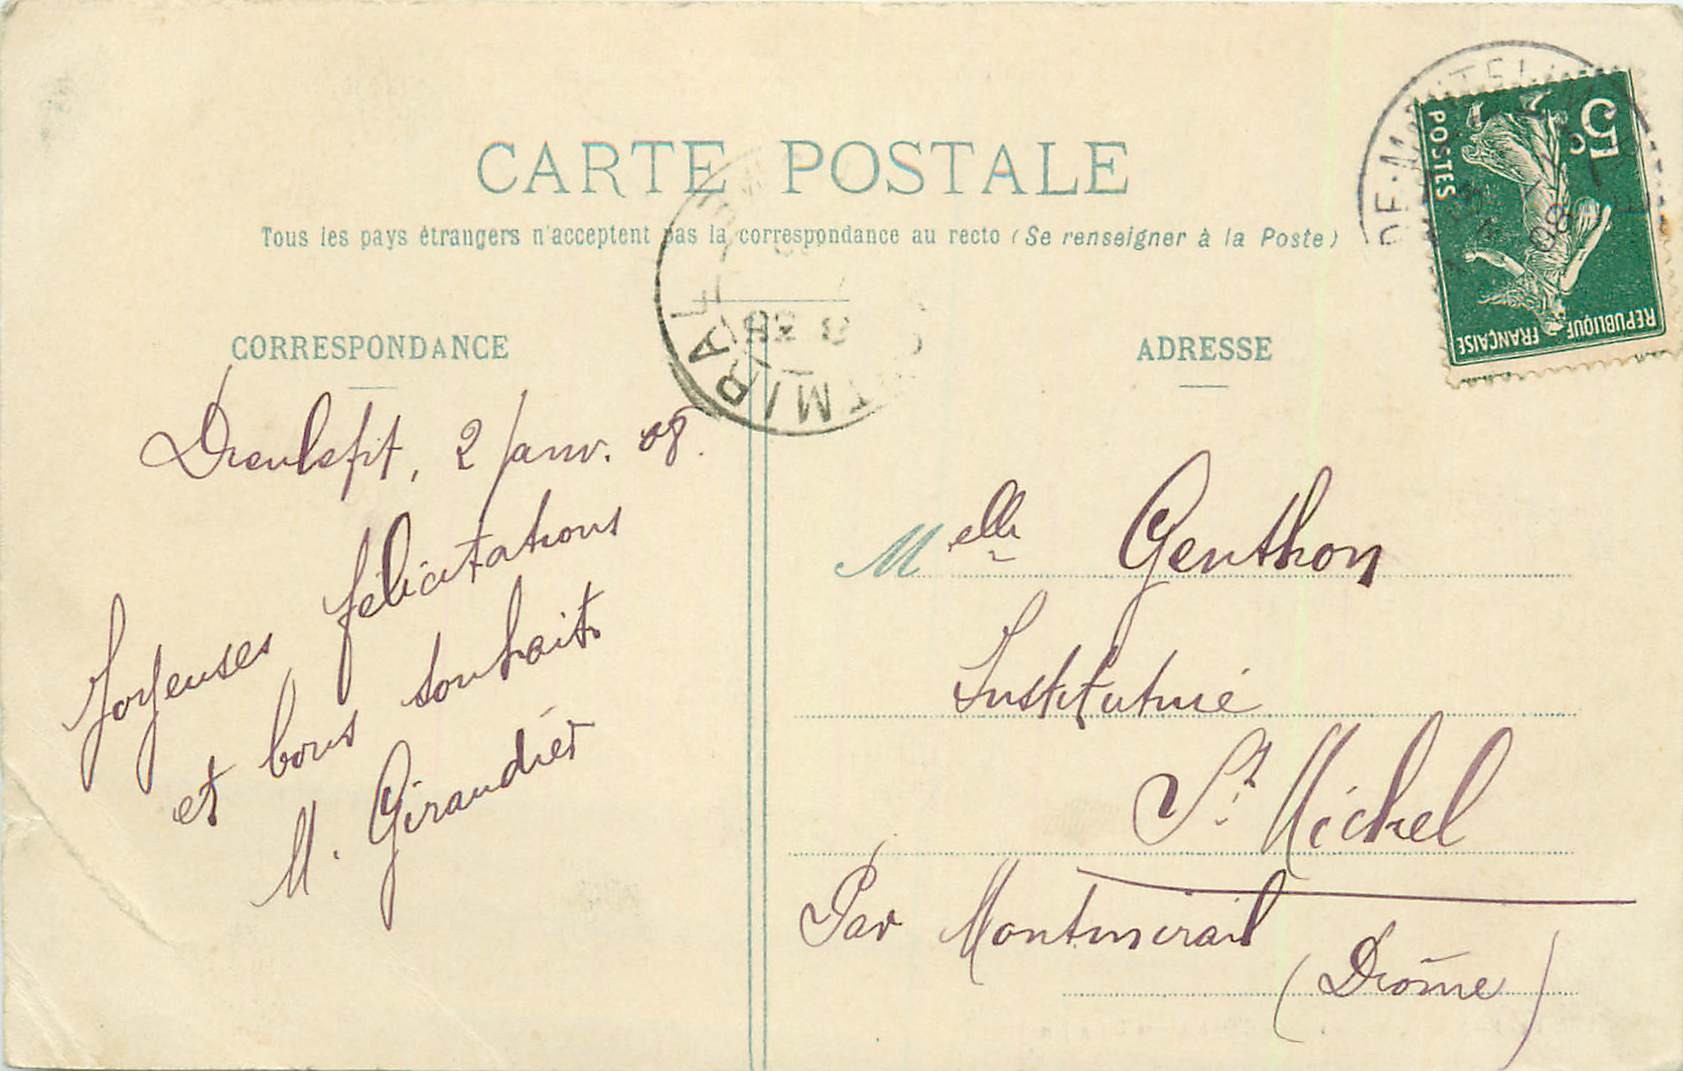 CARTE POSTALE
Tous les pays étrangers n'acceptent pas la correspondance au recto (Se renseigner à la Poste)
CORRESPONDANCE
Dieulefit, 2 janv. 08.
Joyeuses félicitations
et bons souhaits
M. Giraudier
ADRESSE
Melle Genthon
Institutrice
St. Michel
Par Montmirail
(Drôme)
5c
POSTES
REPUBLIQUE FRANÇAISE